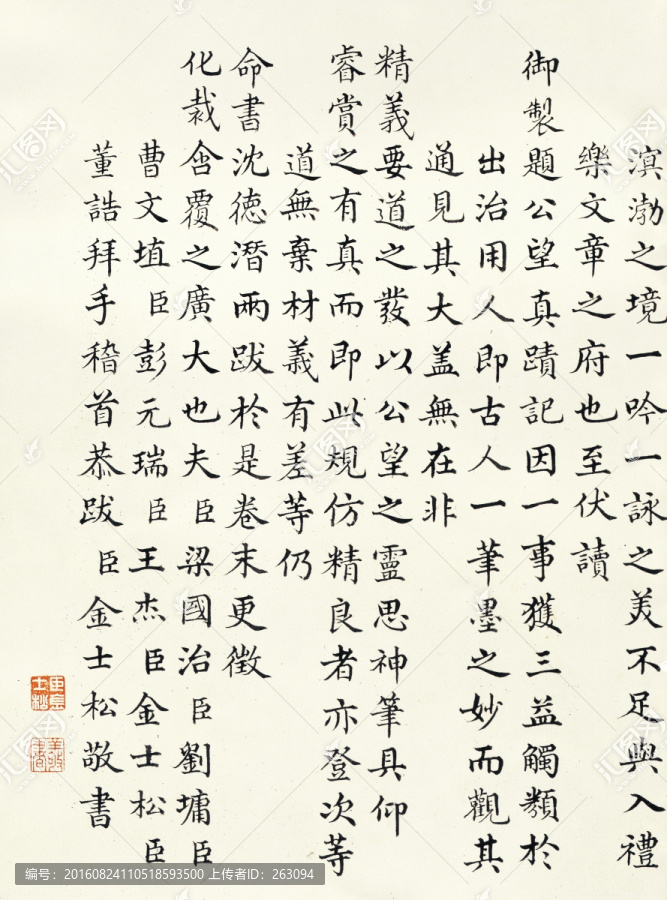 滇渤之境一吟一詠之美不足與入禮
樂文章之府也至伏讀
御製題公望真蹟記因一事獲三益觸類於
出治用人即古人一筆墨之妙而觀其
通見其大盖無在非
精義要道之發以公望之靈思神筆具仰
睿賞之有真而即此規仿精良者亦登次等
道無棄材義有差等仍
命書沈德潛兩跋於是卷末更徵
化裁含覆之廣大也夫臣梁國治臣劉墉臣
曹文埴臣彭元瑞臣王杰臣金士松臣
董誥拜手稽首恭跋臣金士松敬書
汇图网
编号：20160824110518593500 上传者ID：263094